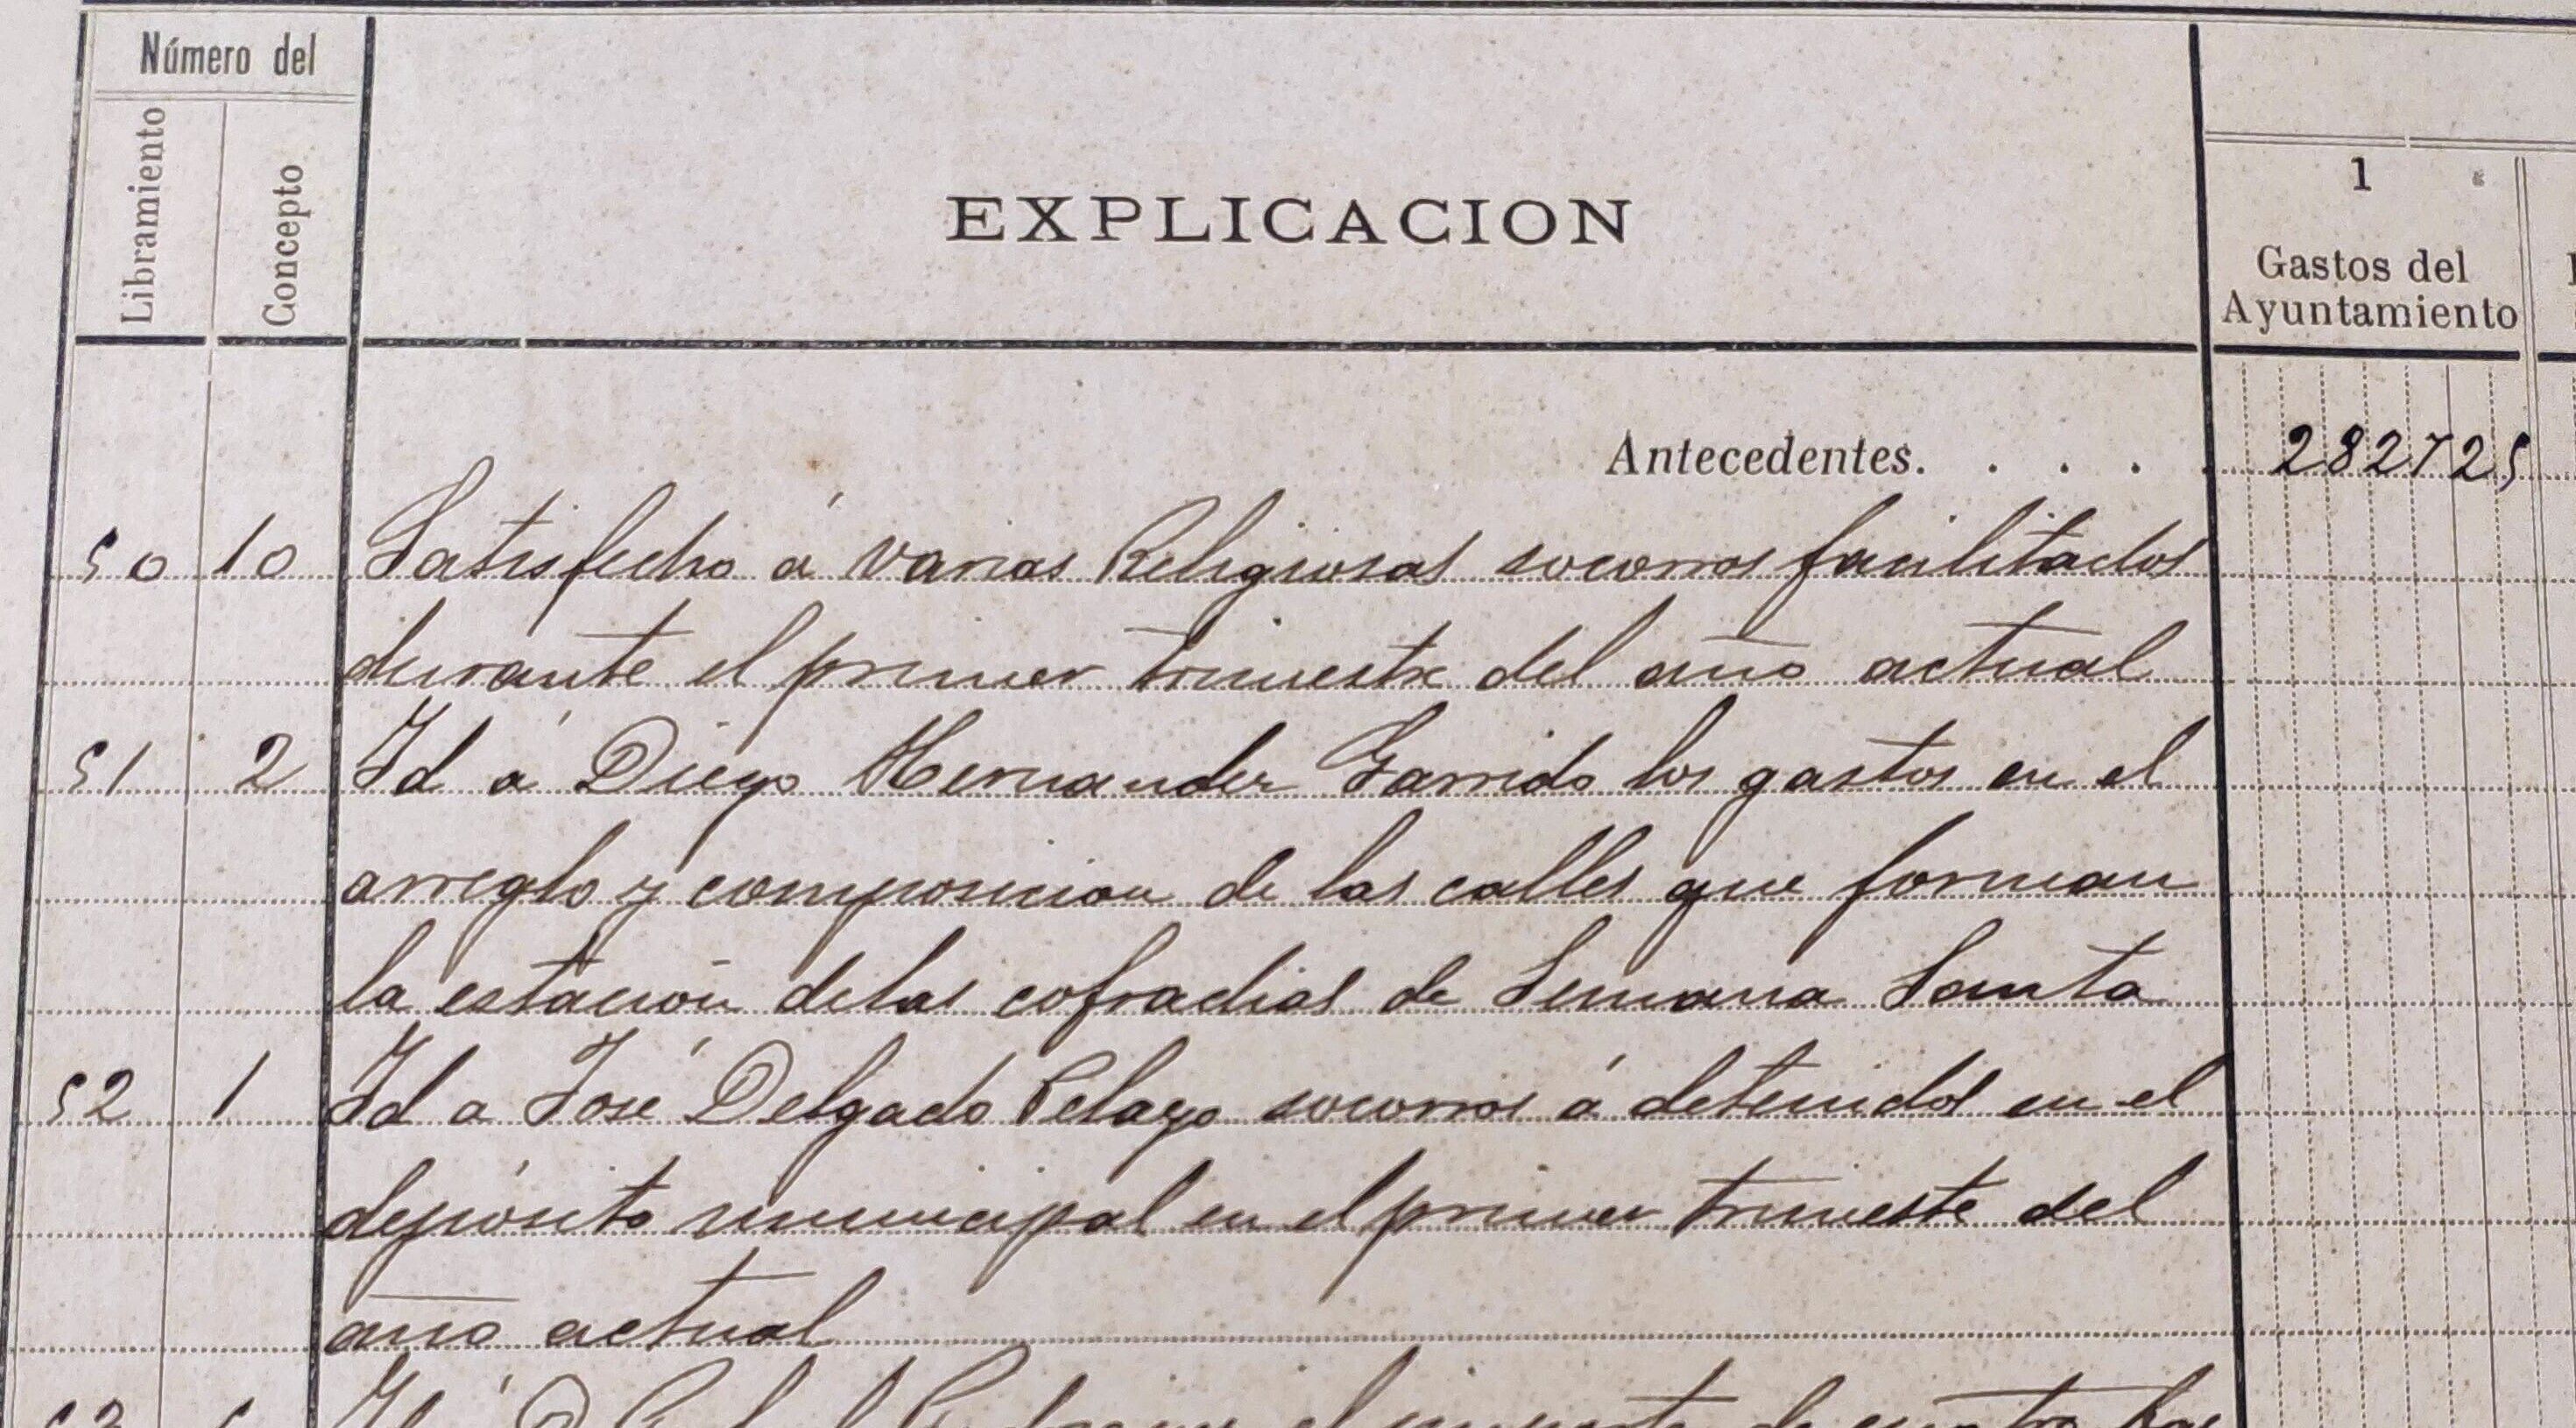 Número del
Libramiento
Concepto
EXPLICACION
1
Gastos del
Ayuntamiento
Antecedentes. . . . . 282725
50 10 Satisfecho á varias Religiosas socorros facilitados
durante el primer trimestre del año actual
51 2 Id á Diego Hernandez Garrido los gastos en el
arreglo y composicion de las calles que forman
la estación delas cofradias de Semana Santa
52 1 Id a José Delgado Pelayo socorros á detenidos en el
depósito municipal en el primer trimestre del
año actual
53